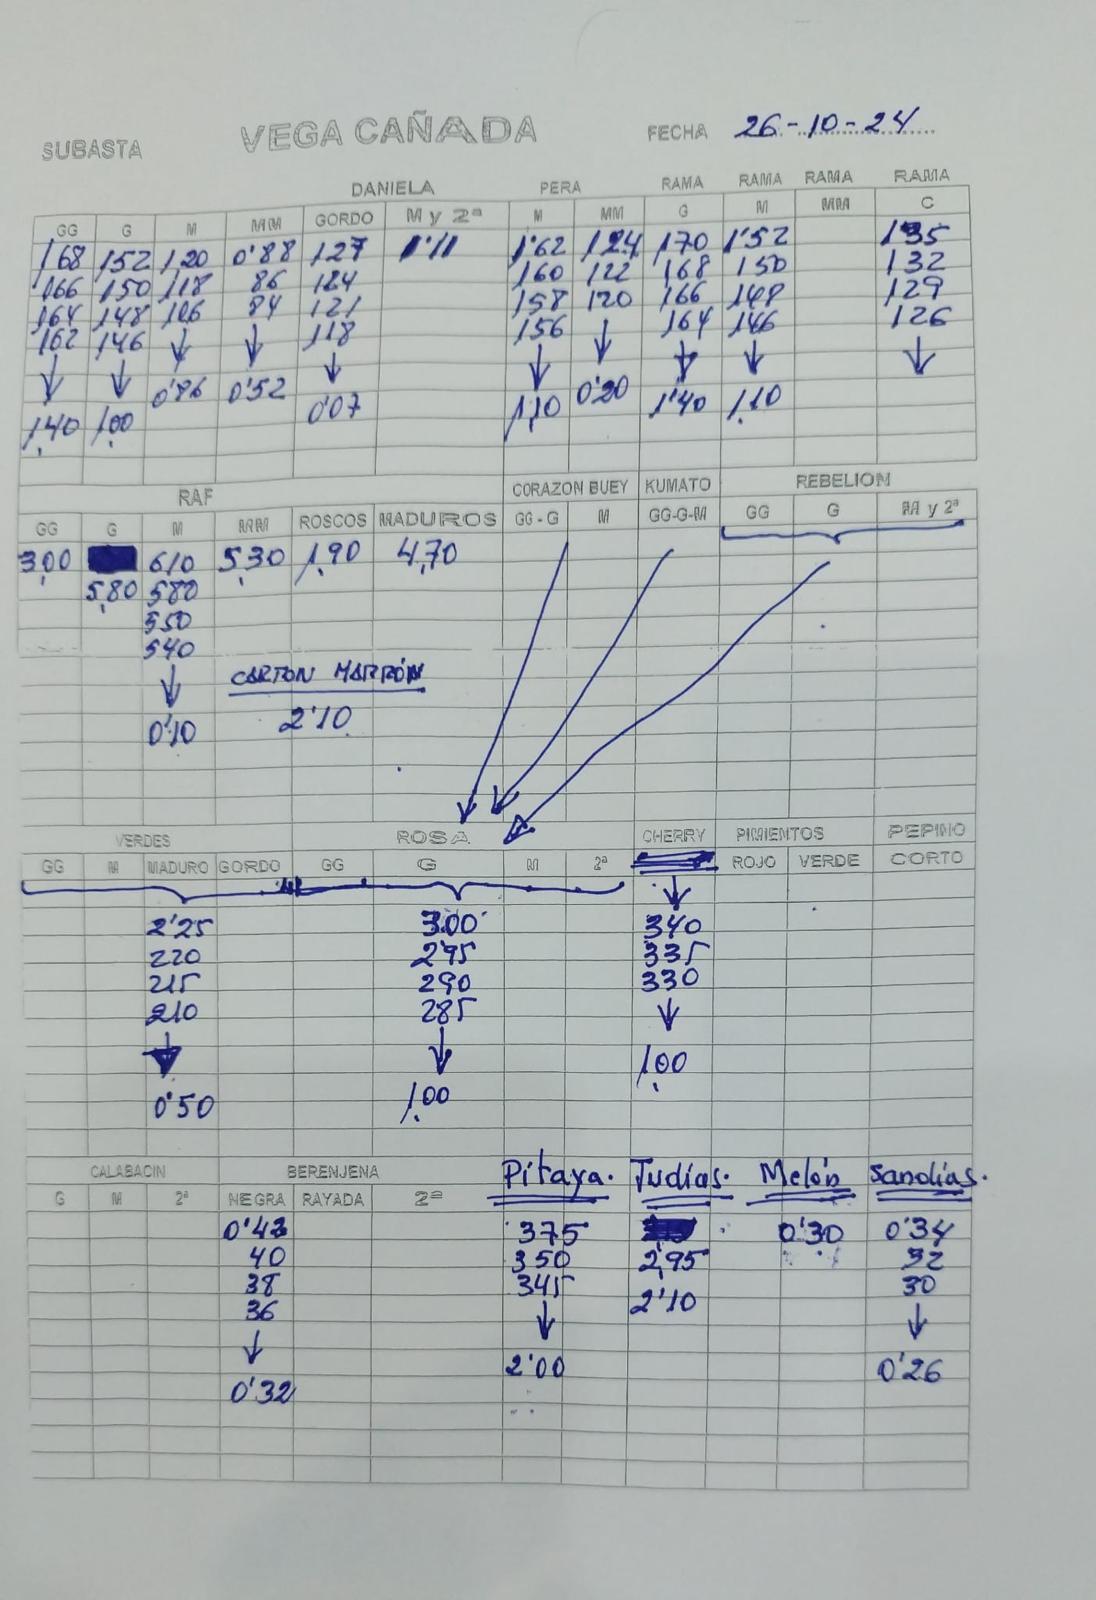 SUBASTA VEGA CAÑADA FECHA 26-10-24
DANIELA PERA RAMA RAMA RAMA RAMA
GG G M MM GORDO M y 2ª M MM G M MM C
1,68 1,52 1,20 0'88 1,27 1'11 1'62 1,24 1,70 1'52 1'35
1,66 1,50 1,18 86 1,24 1,60 1,22 1,68 1,50 1,32
1,64 1,48 84 1,21 1,58 1,20 1,66 1,48 1,29
1,62 1,46 1,18 1,56 1,64 1,46 1,26
0'52 0'20
1,40 1,00 0'07 1,10 1'40 1,10
RAF CORAZON BUEY KUMATO REBELION
GG G M MM ROSCOS MADUROS GG-G M GG-G-M GG G M y 2ª
3,00 610 5,30 1,90 4,70
5,80 580
550
540
CARTON MARRÓN
0'10 2'10
VERDES ROSA CHERRY PIMIENTOS PEPINO
GG M MADURO GORDO GG G M 2ª ROJO VERDE CORTO
2'25 3.00 340
220 295 335
215 290 330
210 285
1,00
0'50 1,00
CALABACIN BERENJENA Pitaya. Judías. Melón Sandías.
G M 2ª NEGRA RAYADA 2ª
0'43 375 0'30 0'34
40 350 2,95 32
38 345 2'10 30
36
2'00 0'26
0'32